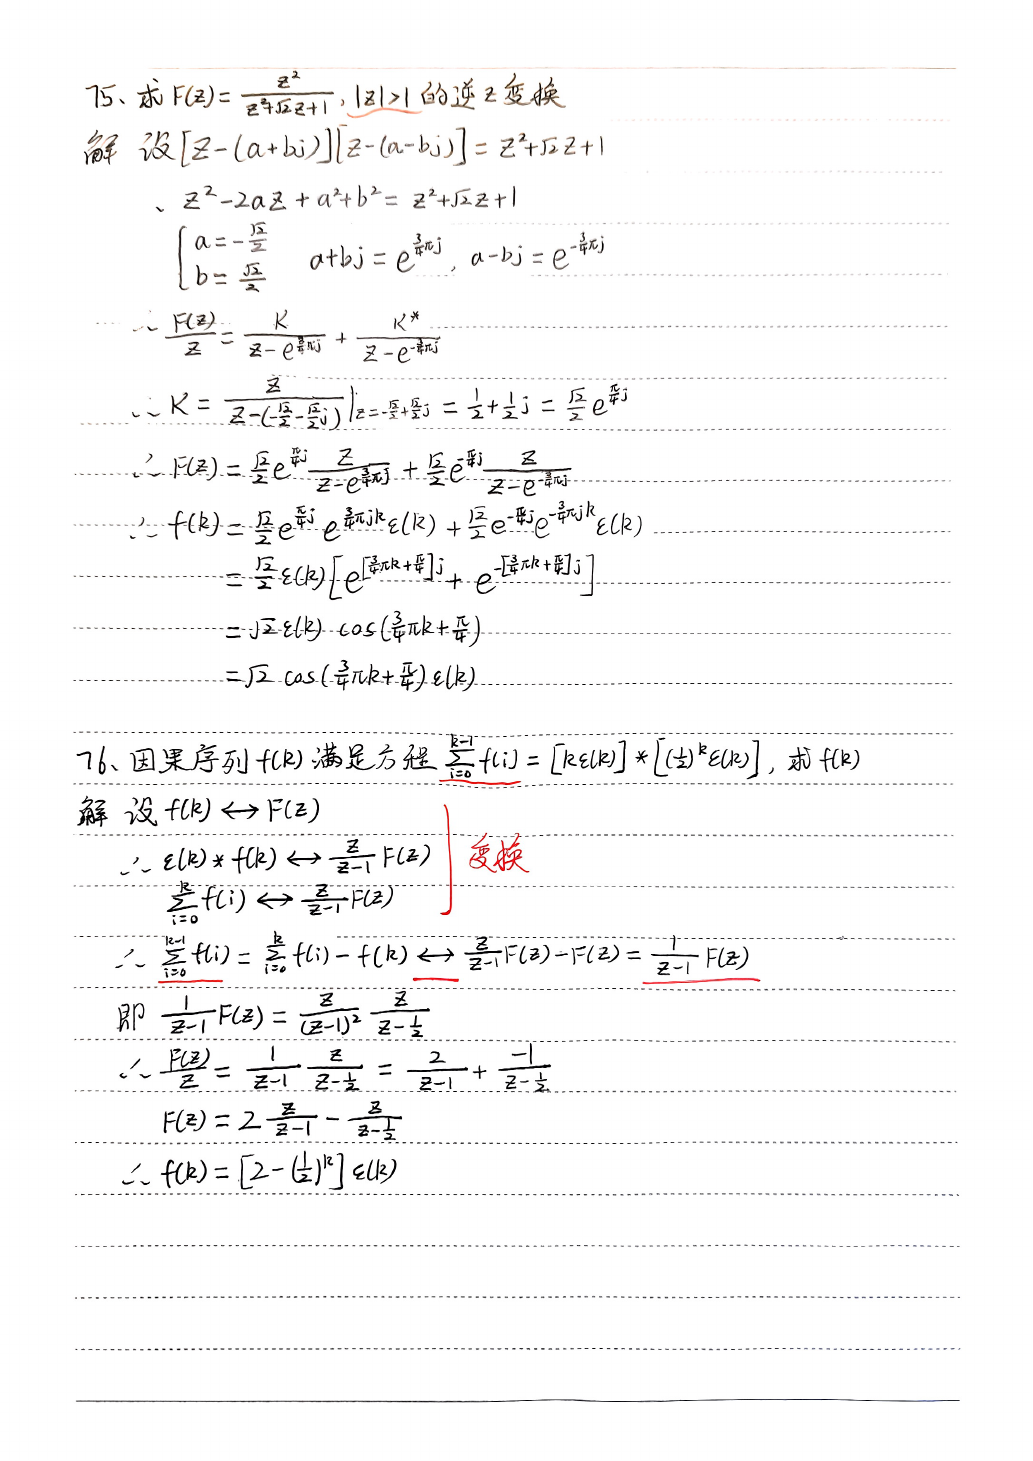 75、求 F(z)= z²/(z²+√2z+1), |z|>1 的逆z变换
解 设[z-(a+bj)][z-(a-bj)] = z²+√2z+1
、z²-2az+a²+b² = z²+√2z+1
{ a=-√2/2
b=√2/2  a+bj = e^{3/4πj}, a-bj = e^{-3/4πj}
∴ F(z)/z = K/(z-e^{3/4πj}) + K*/(z-e^{-3/4πj})
∴ K = z/(z-(-√2/2-√2/2j)) |_{z=-√2/2+√2/2j} = 1/2+1/2j = √2/2 e^{π/4j}
∴ F(z) = √2/2 e^{π/4j} z/(z-e^{3/4πj}) + √2/2 e^{-π/4j} z/(z-e^{-3/4πj})
∴ f(k) = √2/2 e^{π/4j} e^{3/4πjk} ε(k) + √2/2 e^{-π/4j} e^{-3/4πjk} ε(k)
= √2/2 ε(k) [e^{[3/4πk+π/4]j} + e^{-[3/4πk+π/4]j}]
= √2 ε(k) cos(3/4πk+π/4)
= √2 cos(3/4πk+π/4) ε(k)
76、因果序列 f(k) 满足方程 ∑_{i=0}^{k-1} f(i) = [kε(k)] * [(1/2)^k ε(k)], 求 f(k)
解 设 f(k) ↔ F(z)
∴ ε(k) * f(k) ↔ z/(z-1) F(z)
变换
∑_{i=0}^{k} f(i) ↔ z/(z-1) F(z)
∴ ∑_{i=0}^{k-1} f(i) = ∑_{i=0}^{k} f(i) - f(k) ↔ z/(z-1) F(z) - F(z) = 1/(z-1) F(z)
即 1/(z-1) F(z) = z/(z-1)² z/(z-1/2)
∴ F(z)/z = 1/(z-1) z/(z-1/2) = 2/(z-1) + -1/(z-1/2)
F(z) = 2 z/(z-1) - z/(z-1/2)
∴ f(k) = [2-(1/2)^k] ε(k)